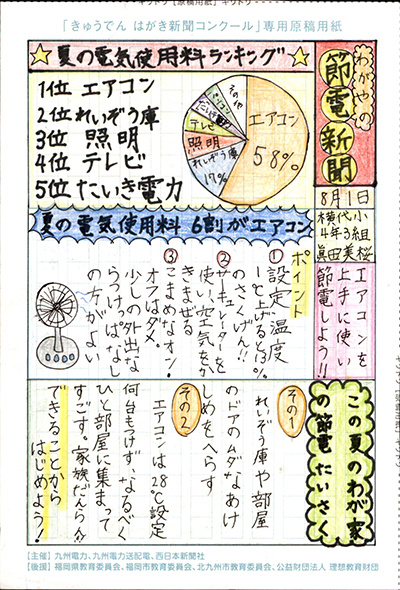 「きゅうでん はがき新聞コンクール」専用原稿用紙
わがやの
節電新聞
8月1日
横代小
4年3組
眞田美桜
☆夏の電気使用料ランキング☆
1位 エアコン
2位 れいぞう庫
3位 照明
4位 テレビ
5位 たいき電力
エアコン
58%
れいぞう庫
17%
照明
テレビ
パソコン
その他
夏の電気使用料 6割がエアコン
エアコンを
上手に使い
節電しよう!!
ポイント
①設定温度
1℃上げると13%
のさくげん!!
②サーキュレーターを
使い空気をか
きまぜる
③こまめなオン!
オフはダメ。
少しの外出な
らつけっぱなし
の方がよい
この夏のわが家
の節電たいさく
その1
れいぞう庫や部屋
のドアのムダなあけ
しめをへらす
その2
エアコンは28℃設定
何台もつけず、なるべく
ひと部屋に集まって
すごす。家族だんらん!!
できることから
はじめよう!
【主催】九州電力、九州電力送配電、西日本新聞社
【後援】福岡県教育委員会、福岡市教育委員会、北九州市教育委員会、公益財団法人 理想教育財団